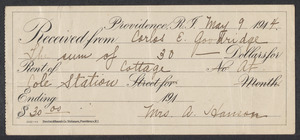 Providence, R. I. May 9 1914.
Received from Carlos E.
sum of 30 Dollars for
Rent of Cottage No. At
Cole Station Street for Month
Ending 191
$30.00 Mrs. A.